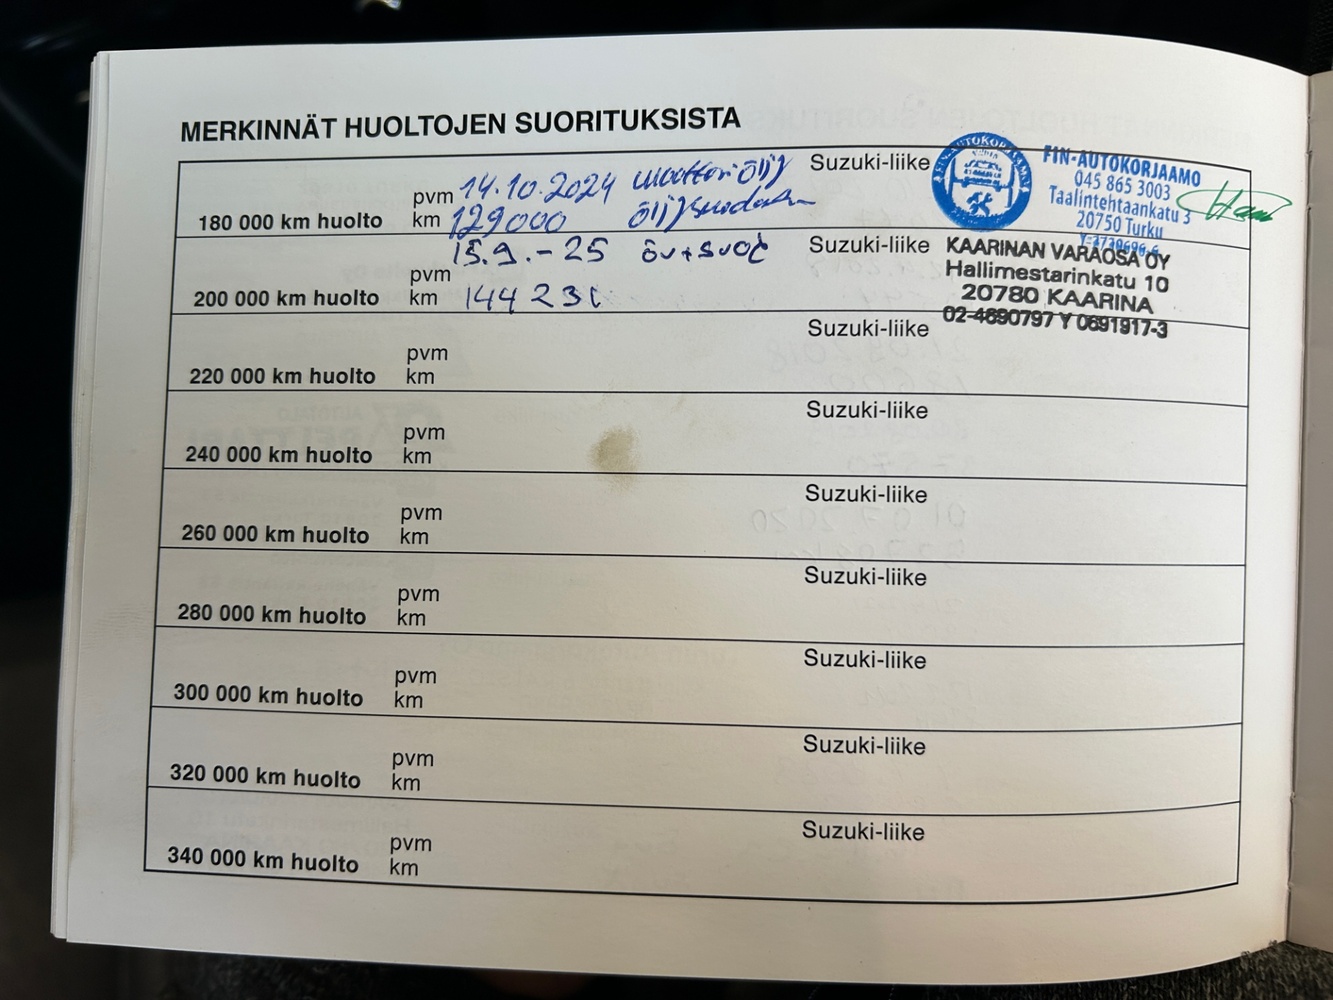 MERKINNÄT HUOLTOJEN SUORITUKSISTA
180 000 km huolto
pvm 14.10.2024 moottoriöljy
km 129000 öljysuodatin
Suzuki-liike
FIN-AUTOKORJAAMO
045 865 3003
Taalintehtaankatu 3
20750 Turku
200 000 km huolto
pvm 15.9.-25 öv+suod
km 144 23
Suzuki-liike
KAARINAN VARAOSA OY
Hallimestarinkatu 10
20780 KAARINA
02-4690797 Y 0691917-3
220 000 km huolto
pvm
km
Suzuki-liike
240 000 km huolto
pvm
km
Suzuki-liike
260 000 km huolto
pvm
km
Suzuki-liike
280 000 km huolto
pvm
km
Suzuki-liike
300 000 km huolto
pvm
km
Suzuki-liike
320 000 km huolto
pvm
km
Suzuki-liike
340 000 km huolto
pvm
km
Suzuki-liike